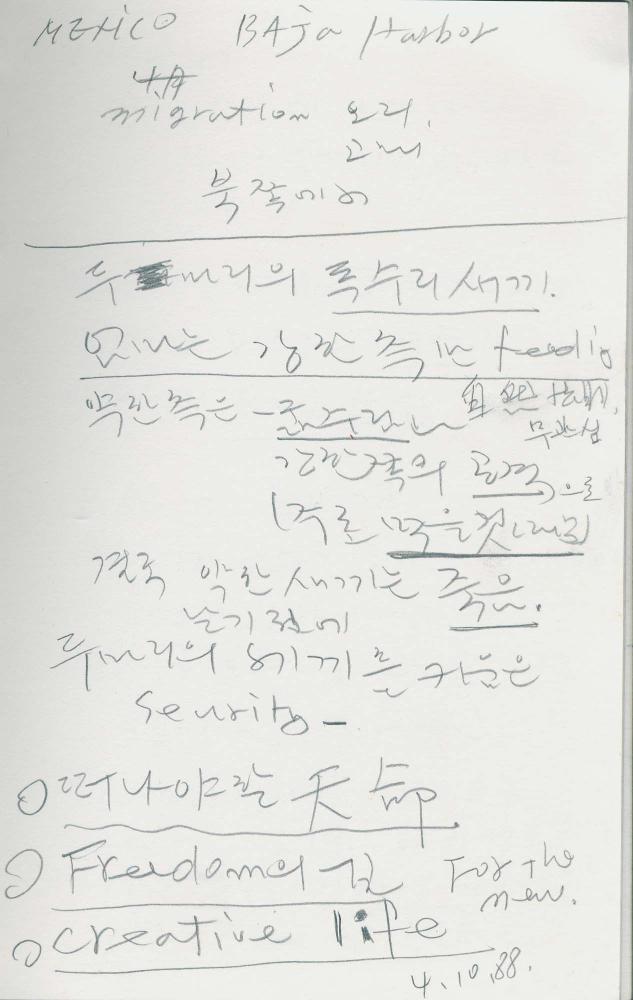 MEXICO BAja Harbor
migration 오리,
고래
북쪽에서
두 마리의 독수리 새끼.
어미는 강한 쪽만 feeding
약한 쪽은 自然
무관심
강한 쪽의 공격으로
(주로 먹을 것
결국 약한 새끼는 죽음.
날기 전에
두마리의 새끼를 키움은
Security –
떠나야할 天命
Freedom의 길 For the
new.
creative life
4.10.88.